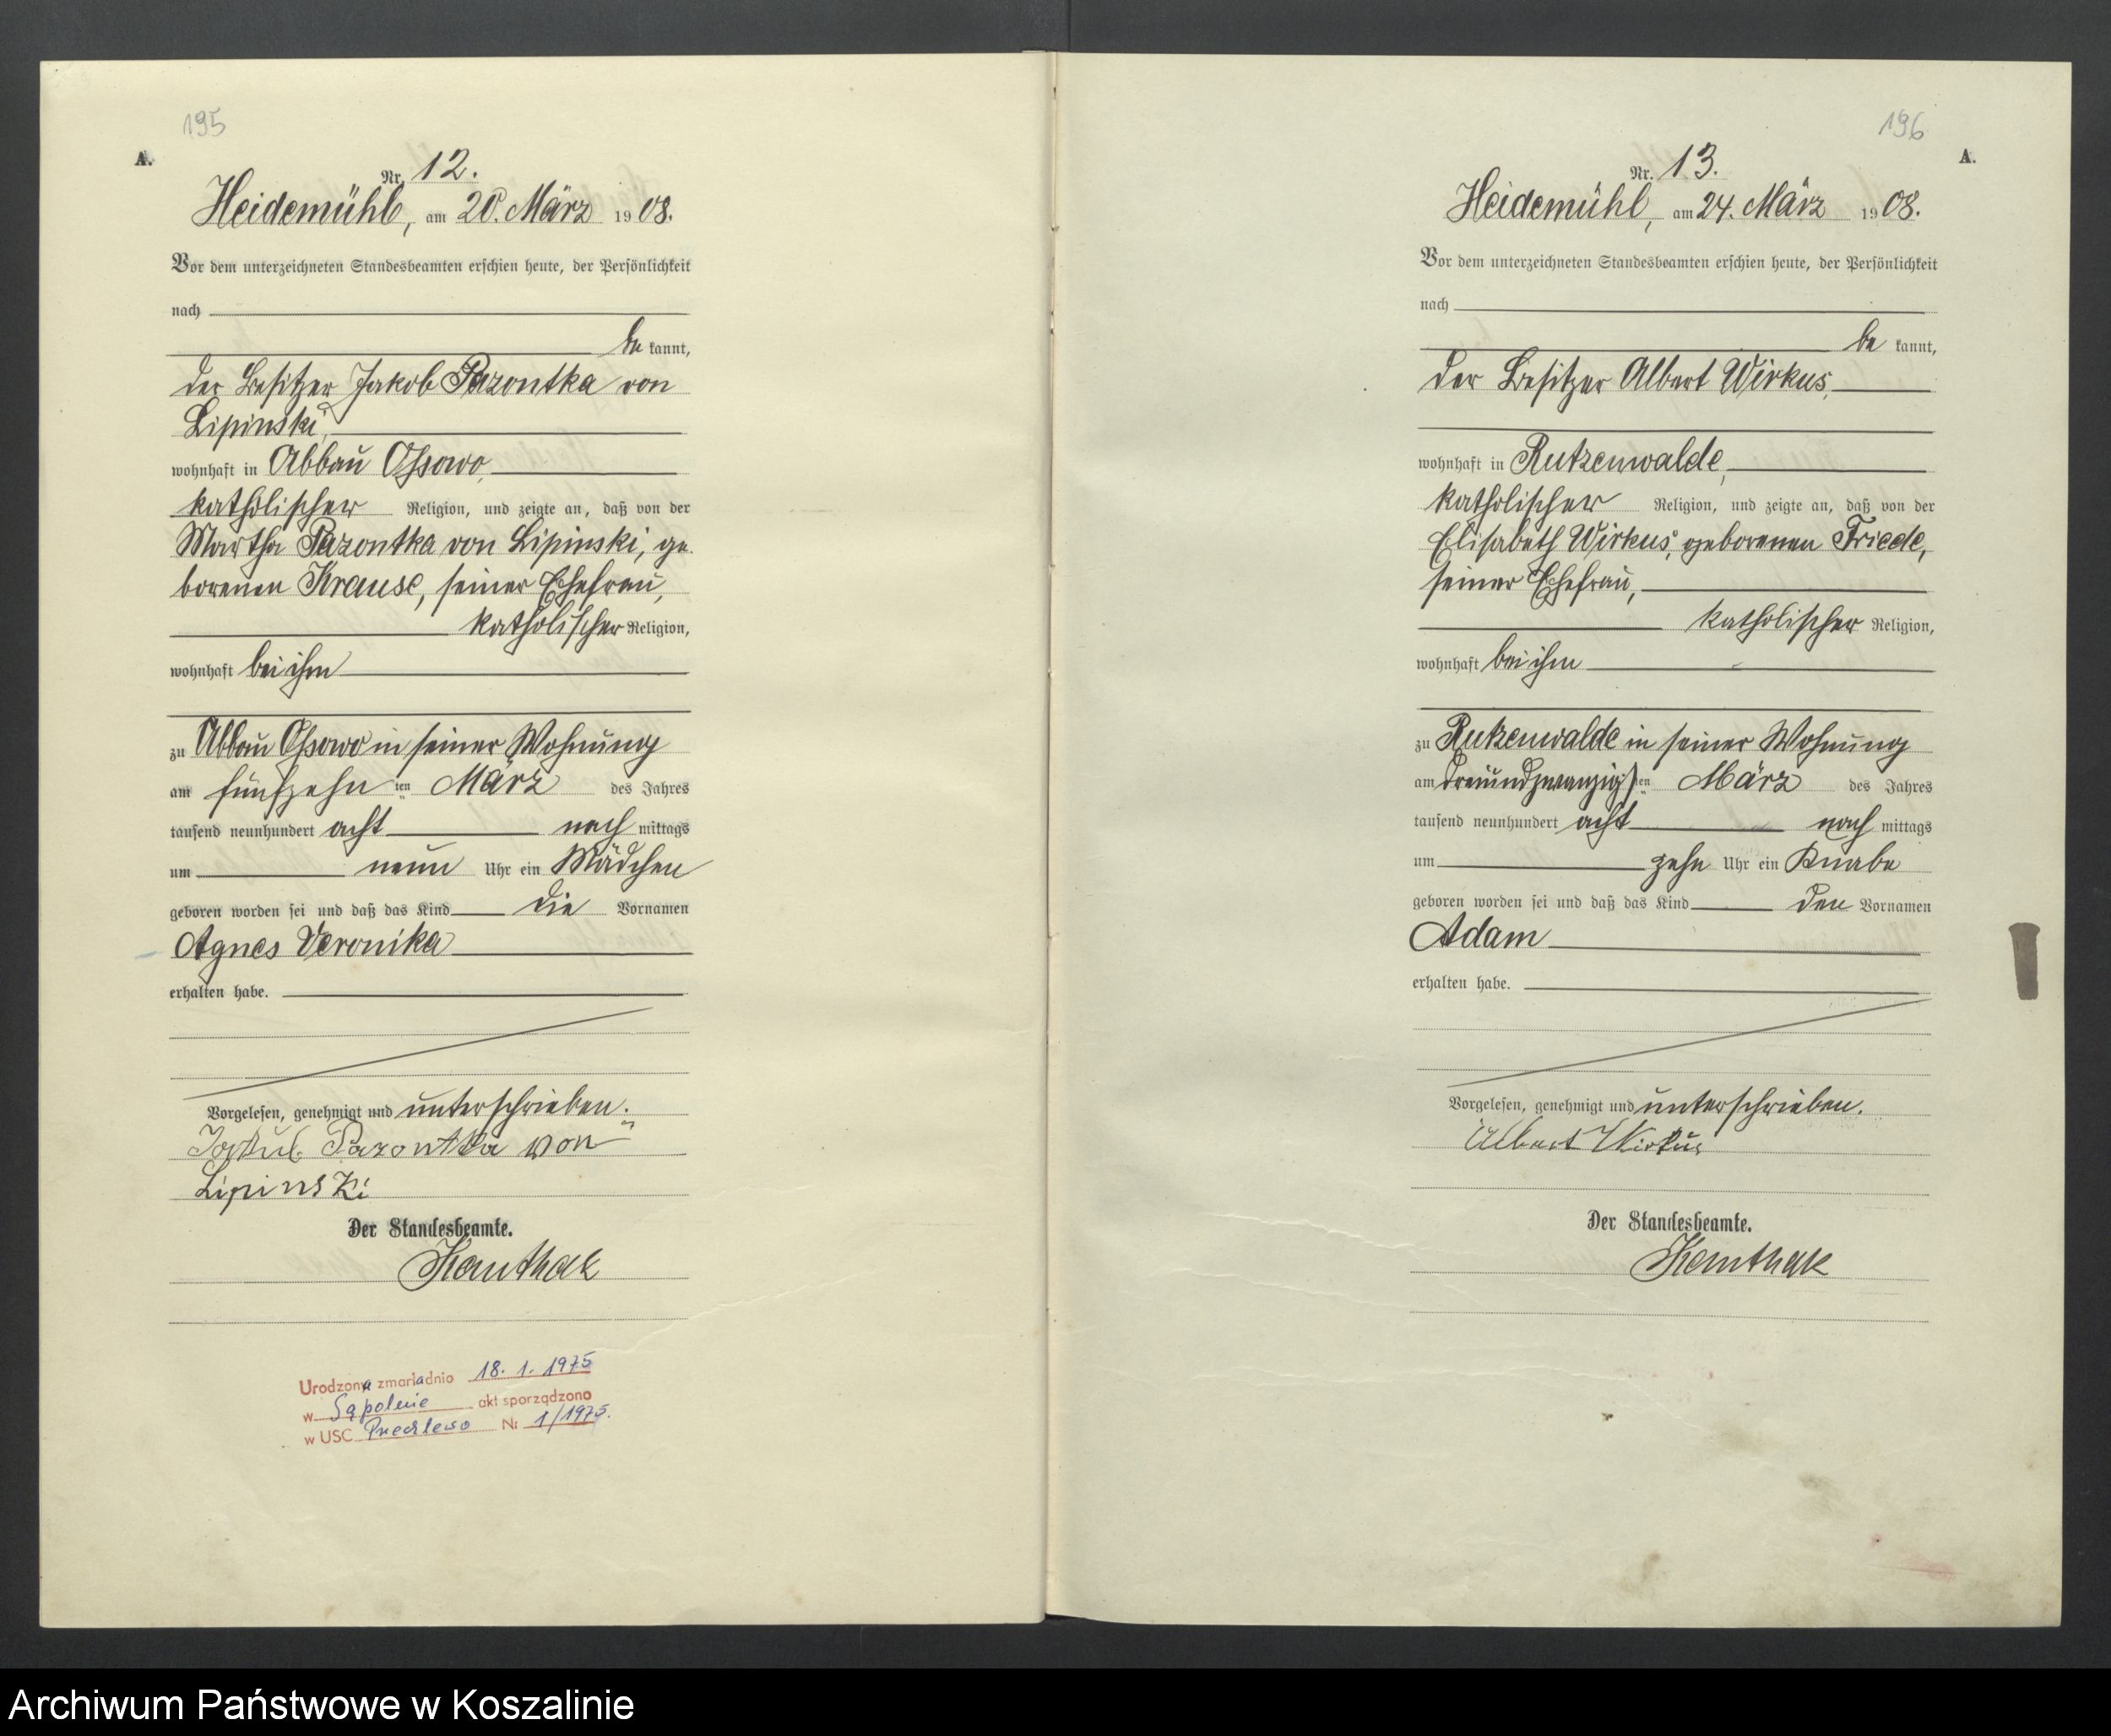 195
A.
Nr. 12.
Heidemühl, am 20. März 1908.
Vor dem unterzeichneten Standesbeamten erschien heute, der Persönlichkeit
nach
be kannt,
der Besitzer Jakob Pazontka von
Lipinski,
wohnhaft in Abbau Ossowo,
katholischer Religion, und zeigte an, daß von der
Martha Pazontka von Lipinski, ge-
borenen Krause, seiner Ehefrau,
katholischer Religion,
wohnhaft bei ihm
zu Abbau Ossowo in seiner Wohnung
am fünfzehn ten März des Jahres
tausend neunhundert acht nach mittags
um neun Uhr ein Mädchen
geboren worden sei und daß das Kind die Vornamen
Agnes Veronika
erhalten habe.
Vorgelesen, genehmigt und unterschrieben.
Jakub Pazontka von
Lipinski
Der Standesbeamte.
Kauthak
Urodzona zmarła dnio 18. 1. 1975
w Sąpolnie akt sporządzono
w USC Przechlewo Nr 1/1975.
196
A.
Nr. 13.
Heidemühl, am 24. März 1908.
Vor dem unterzeichneten Standesbeamten erschien heute, der Persönlichkeit
nach
be kannt,
der Besitzer Albert Wirkus,
wohnhaft in Rutzenwalde,
katholischer Religion, und zeigte an, daß von der
Elisabeth Wirkus, geborenen Friede,
seiner Ehefrau,
katholischer Religion,
wohnhaft bei ihm
zu Rutzenwalde in seiner Wohnung
am dreiundzwanzigsten März des Jahres
tausend neunhundert acht nach mittags
um zehn Uhr ein Knabe
geboren worden sei und daß das Kind den Vornamen
Adam
erhalten habe.
Vorgelesen, genehmigt und unterschrieben.
Albert Wirkus
Der Standesbeamte.
Kauthak
Archiwum Państwowe w Koszalinie